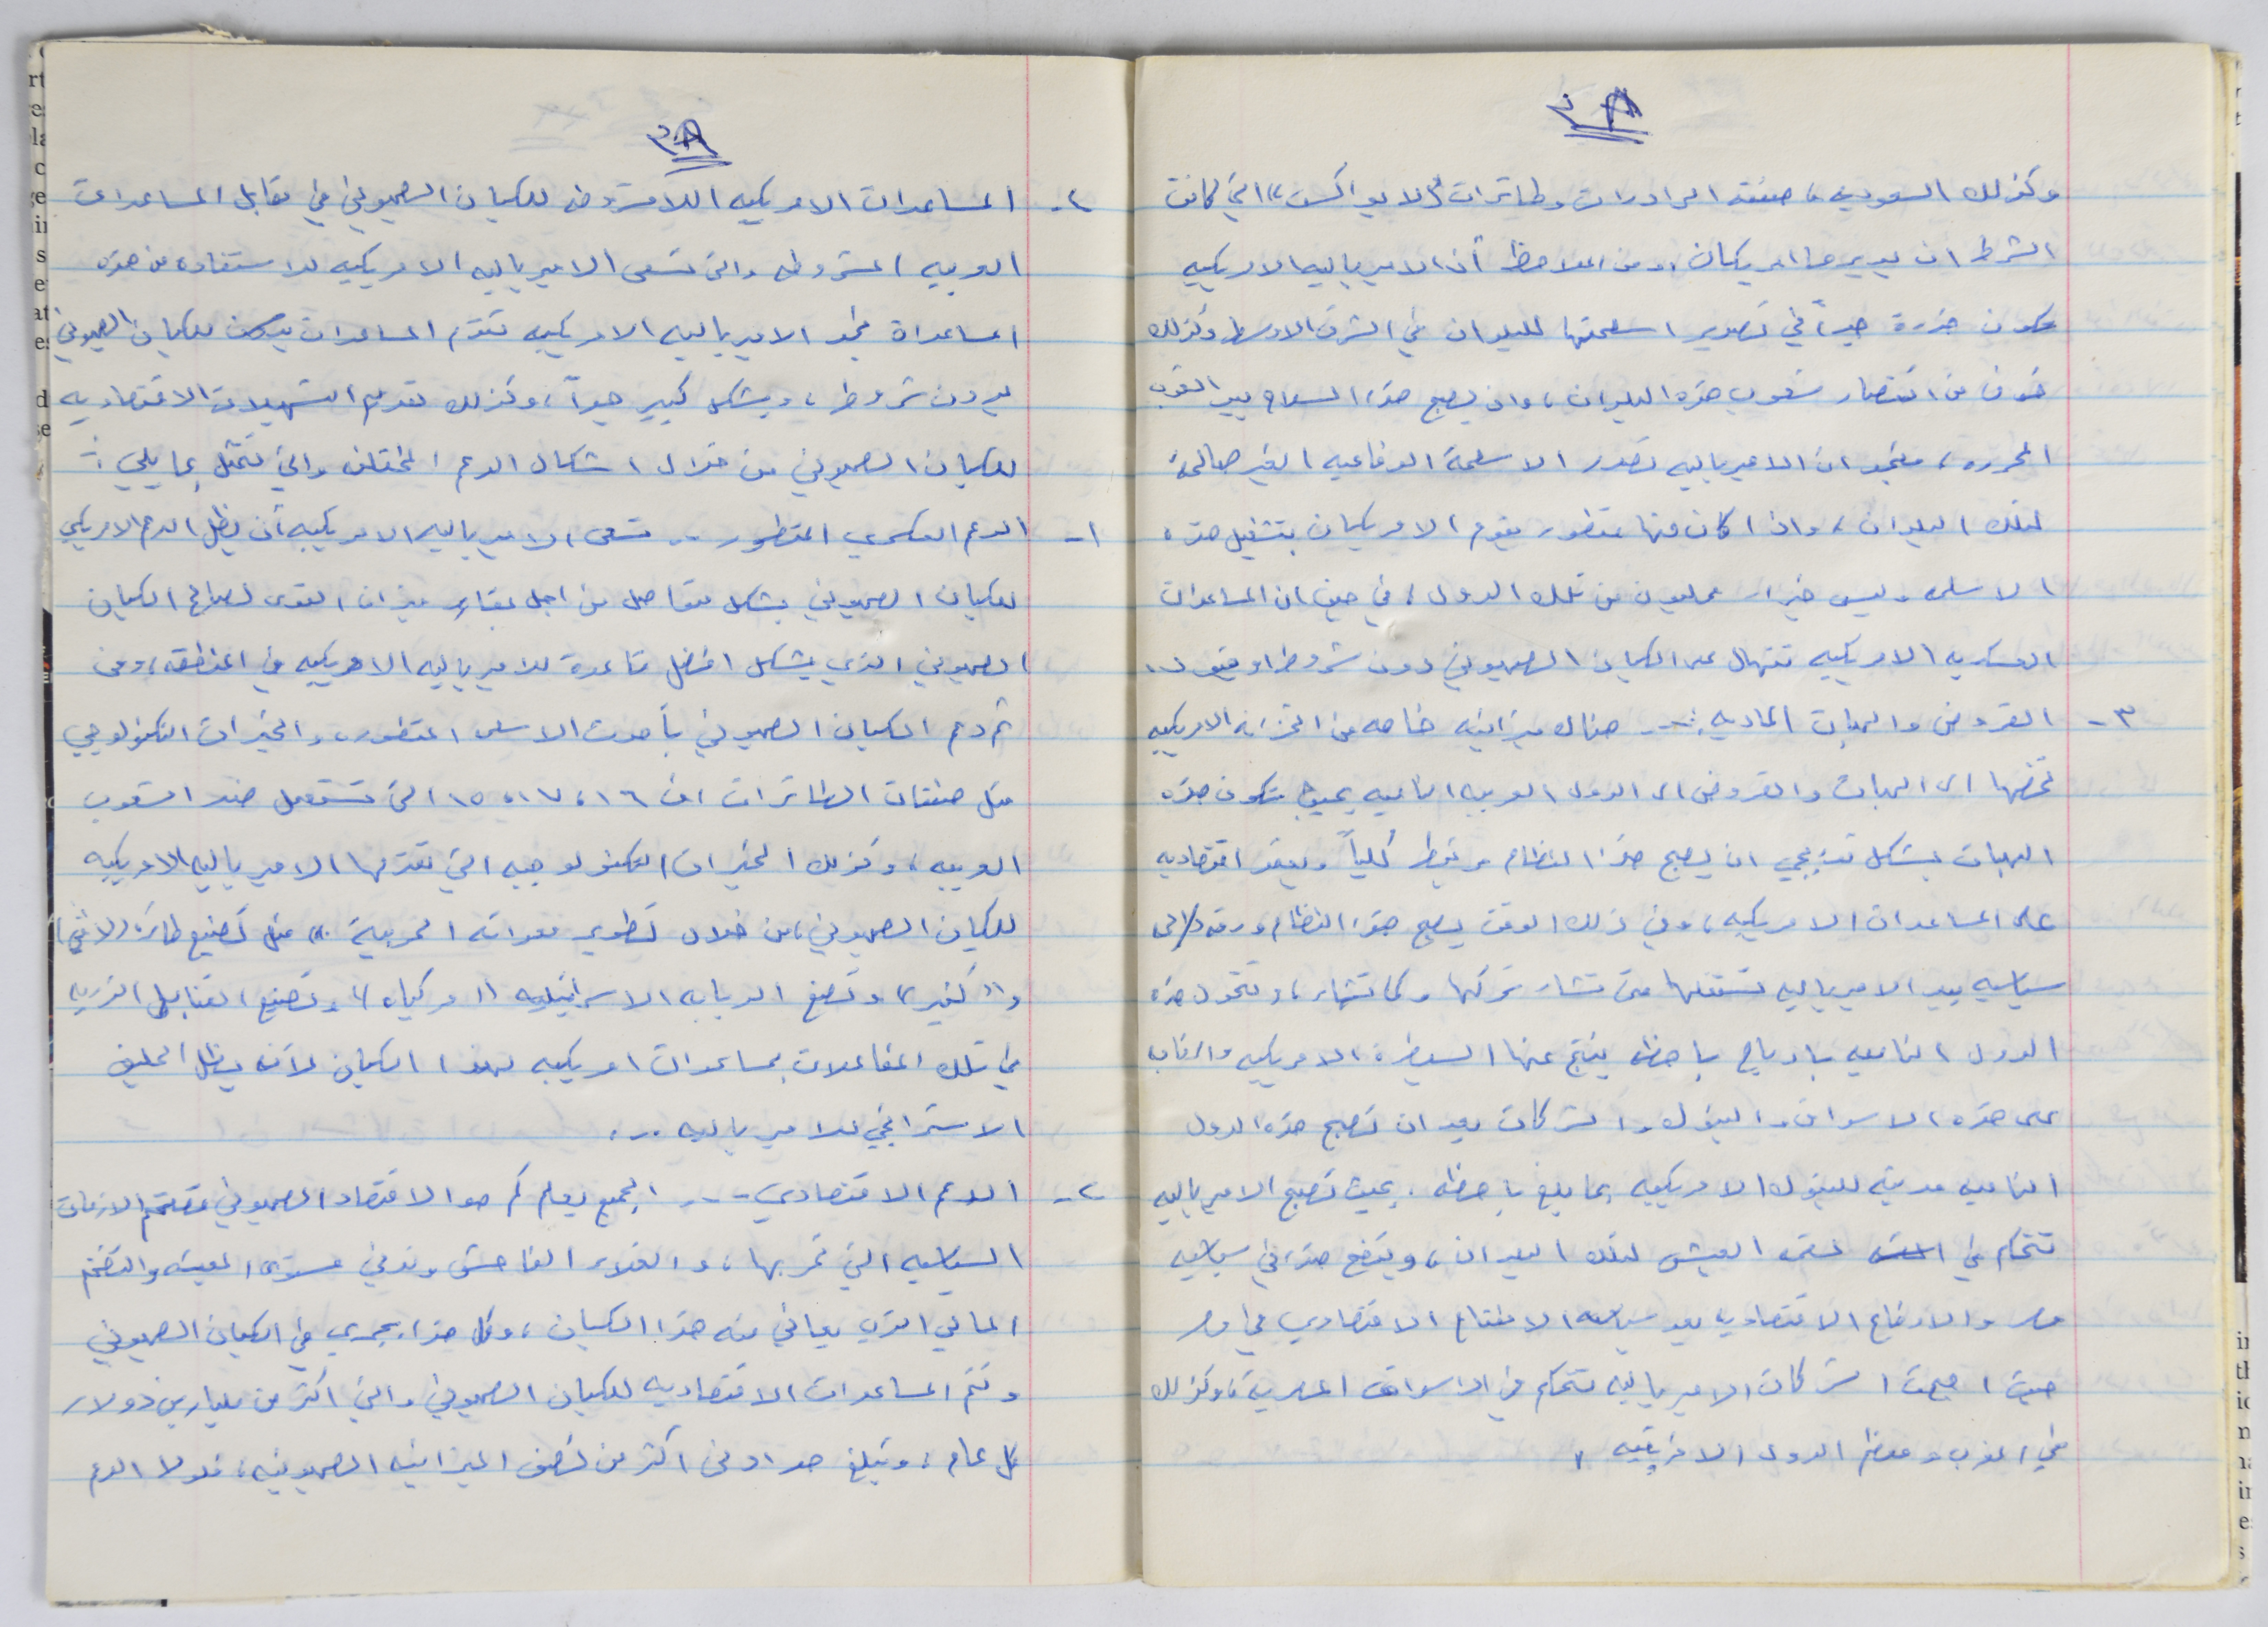 ٣٨
وكذلك السعودية، صفقة الرادارات وطائرات "الايواكس" التي كانت
الشرط ان يديرها امريكان، ومن الملاحظ أن الامبرياليه الامريكيه
تكون حذرة جداً في تصدير اسلحتها للبلدان في الشرق الاوسط وكذلك
خوف من انتصار شعوب هذه البلدان، وان يصبح هذا السلاح بيد القوى
المحرره، فنجد ان الامبرياليه تصدر الاسلحة الدفاعيه الغير صالحة
لتلك البلدان، واذا كان منها متطور يقوم الامريكيان بتشغيل هذه
الاسلحه وليس خبراء محليون من تلك الدول، في حين ان المساعدات
العسكريه الامريكيه تنهال على الكيان الصهيوني دون شروط او قيود.
٣- القروض والهبات الماديه :-- هناك ميزانيه خاصه من الخزانه الامريكيه
تخصها الى الهبات والقروض الى الدول العربيه الناميه بحيث تكون هذه
الهبات بشكل تدريجي ان يصبح هذا النظام مرتبط كلياً ويعتمد اقتصاديه
على المساعدات الامريكيه، وفي ذلك الوقت يصبح هذا النظام ورقه
سياسيه بيد الامبرياليه تستغلها متى تشاء وكما تشاء، وتتحول هذه
الدول الناميه بارباح باهظه ينتج عنها السيطرة الامريكيه
على هذه الاسواق والبنوك والشركات بعد ان تصبح هذه الدول
الناميه مدينه للبنوك الامريكيه بمبالغ باهظه. بحيث تصبح الامبرياليه
تتحكم في لقمة العيش لتلك البلدان، ويتضح هذا في سياسيه
مصر والاوضاع الاقتصاديه بعد سياسه الانفتاح الاقتصادي في مصر
حيث اصبحت الشركات الامبرياليه تتحكم في الاسواق المصرية، وكذلك
في المغرب ومعظم الدول الافريقيه.
٣٩
٢- المساعدات الامريكيه اللامشروطه للكيان الصهيوني في مقابل المساعدات
العربيه المشروطه والتي تسعى الامبرياليه الامريكيه للاستفاده من هذه
المساعداة نجد الامبرياليه الامريكيه تقدم المساعدات للكيان الصهيوني
بدون شروط، وبشكل كبير جداً، وكذلك تقديم التسهيلات الاقتصاديه
للكيان الصهيوني من خلال اشكال الدعم المختلف والتي تتمثل بما يلي :-
١- الدعم العسكري المتطور -- تسعى الامبرياليه الامريكيه أن يظل الدعم الامريكي
للكيان الصهيوني بشكل متواصل من اجل بقاء ميزان القوى لصالح الكيان
الصهيوني الذي يشكل افضل قاعدة للامبرياليه الامريكيه في المنطقه، ومن
ثم دعم الكيان الصهيوني بأحدث الاسلحه المتطوره والخبرات التكنولوجي
مثل صفقات الطائرات اف ١٦، ١٧، ١٥ التي تستعمل ضد الشعوب
العربيه، وكذلك الخبرات التكنولوجيه التي تقدمها الامبرياليه الامريكيه
للكيان الصهيوني، من خلال تطوير معداته الحربية، مثل تصنيع طائرة (لافي)
و"كفير" وتصنع الدبابه الاسرائيليه "مركباه"، وتصنيع القنابل الذريه
في تلك المفاعلات بمساعدات امريكيه لهذا الكيان لأنه يظل الحليف
الاستراتيجي للامبرياليه ..
٢- الدعم الاقتصادي --- الجميع يعلم كم هو الاقتصاد الصهيوني الازمات
السياسيه التي تمر بها، والغلاء الفاحش وتدني مستوى المعيشه والتضخم
المالي الذي يعاني منه هذا الكيان، وكل هذا يجري في الكيان الصهيوني
وتتم المساعدات الاقتصاديه للكيان الصهيوني والتي اكثر من مليارين دولار
كل عام، وتبلغ اكثر من نصف الميزانيه الصهيونيه، فلولا الدعم